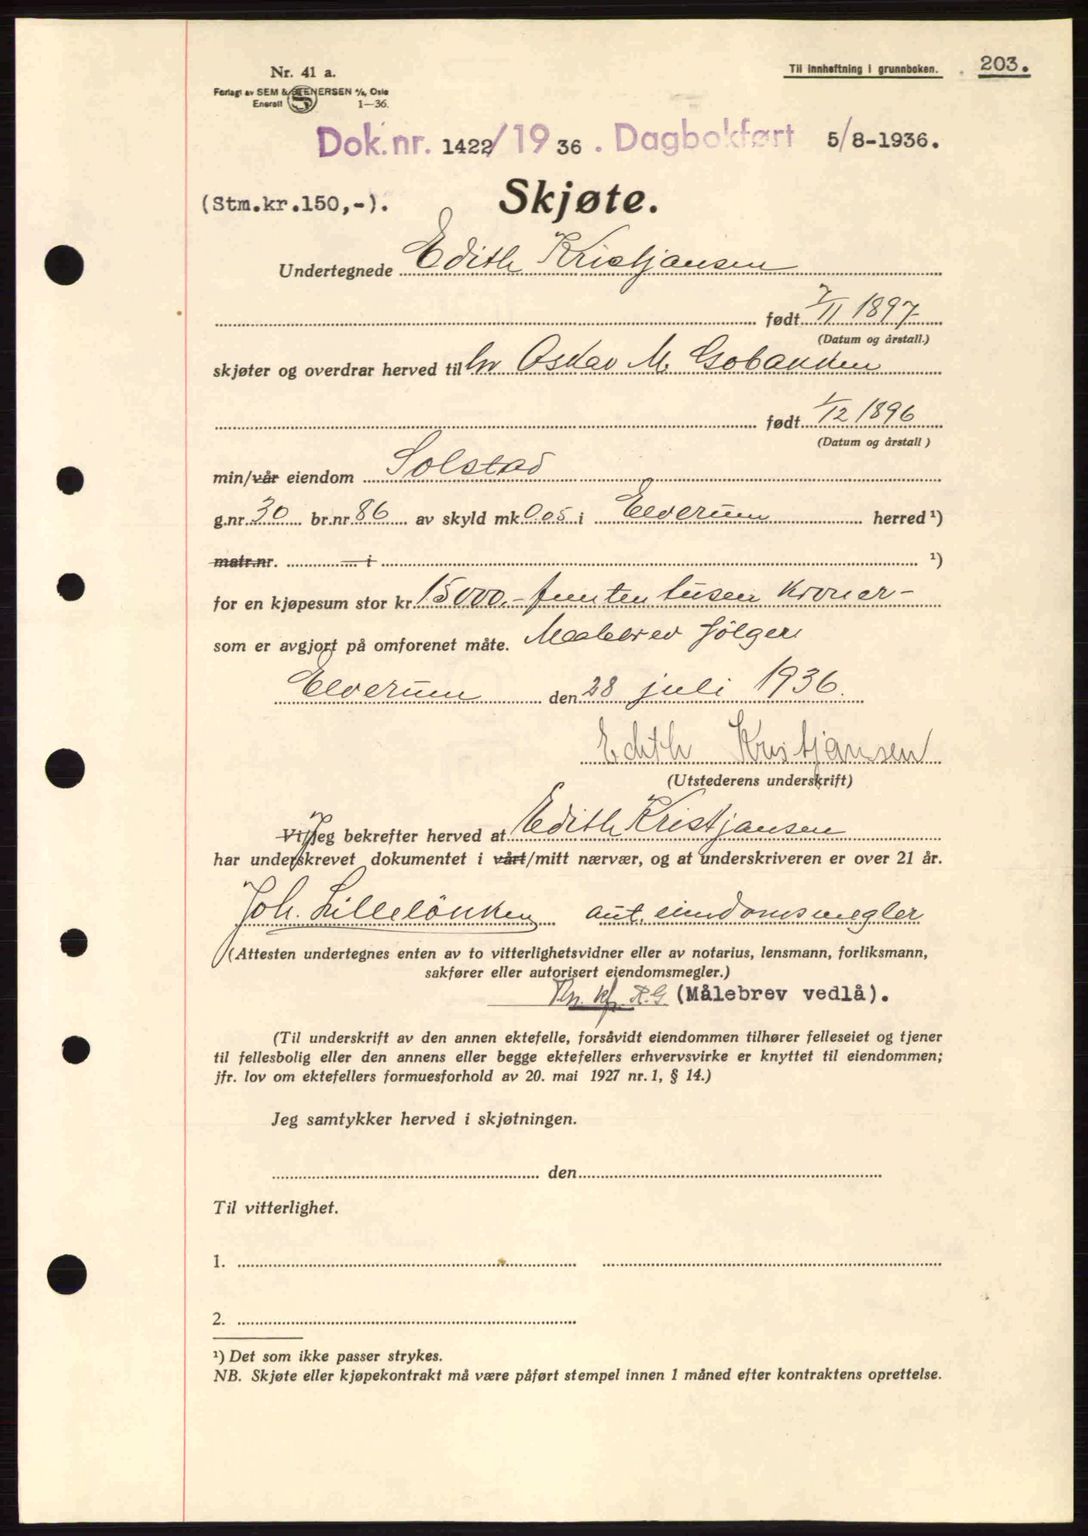 Nr. 41 a.
Forlagt av SEM & STENERSEN A/S, Oslo
Enerett 1—36.
Til innheftning i grunnboken.
203.
Dok.nr. 1422/1936. Dagbokført 5/8-1936.
(Stm.kr.150,-).
Skjøte.
Undertegnede Edith Kristjansen
født 7/11 1897
(Datum og årstall.)
skjøter og overdrar herved til hr Oskar M. Gobakken
født 1/12 1896
(Datum og årstall)
min/vår eiendom Solstad
g.nr. 30 br.nr 86 av skyld mk 0.05 i Elverum herred ¹)
matr.nr. i ¹)
for en kjøpesum stor kr 15000.- femten tusen kroner-
som er avgjort på omforenet måte. Målebrev følger
Elverum den 28 juli 1936.
Edith Kristjansen
(Utstederens underskrift)
Vi/Jeg bekrefter herved at Edith Kristjansen
har underskrevet dokumentet i vårt/mitt nærvær, og at underskriveren er over 21 år.
Joh. Lillelönken aut. eiendomsmegler
(Attesten undertegnes enten av to vitterlighetsvidner eller av notarius, lensmann, forliksmann,
sakfører eller autorisert eiendomsmegler.)
(Målebrev vedlå).
(Til underskrift av den annen ektefelle, forsåvidt eiendommen tilhører felleseiet og tjener
til fellesbolig eller den annens eller begge ektefellers erhvervsvirke er knyttet til eiendommen;
jfr. lov om ektefellers formuesforhold av 20. mai 1927 nr. 1, § 14.)
Jeg samtykker herved i skjøtningen.
den
Til vitterlighet.
1.
2.
¹) Det som ikke passer strykes.
NB. Skjøte eller kjøpekontrakt må være påført stempel innen 1 måned efter kontraktens oprettelse.